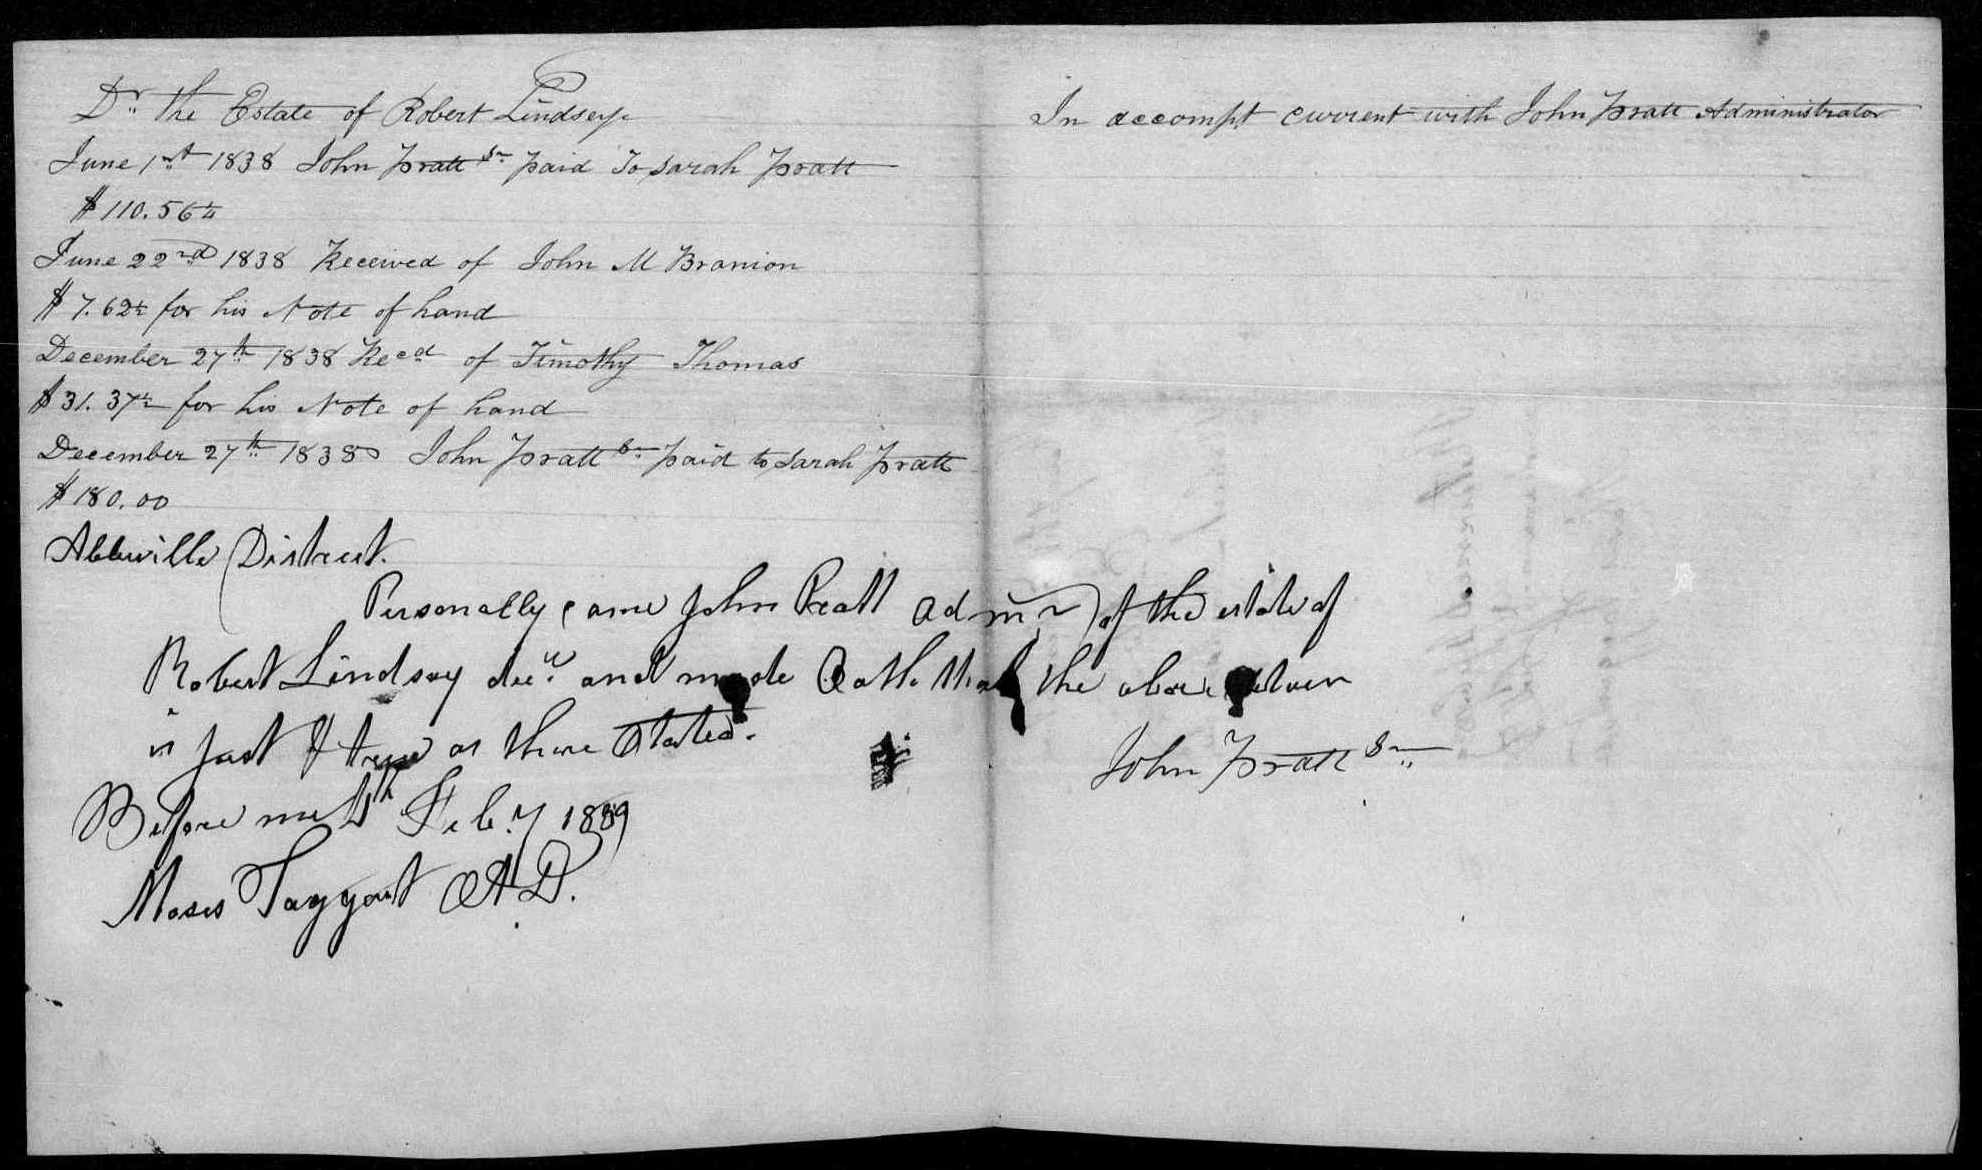 Dr. the Estate of Robert Lindsey
In accompt current with John Pratt Administrator
June 1st 1838 John Pratt Sr. paid To Sarah Pratt
$110.56¼
June 22nd 1838 Received of John M Branion
$7.62½ for his Note of hand
December 27th 1838 Recd of Timothy Thomas
$31.37½ for his Note of hand
December 27th 1838 John Pratt Sr. paid to Sarah Pratt
$180.00
Abbeville District.
Personally came John Pratt admr. of the estate of
Robert Lindsay decd. and made Oath that the above return
is just & true as there Stated.
John Pratt Sr.
Before me Feb.y 1839
Moses Taggart O.A.D.